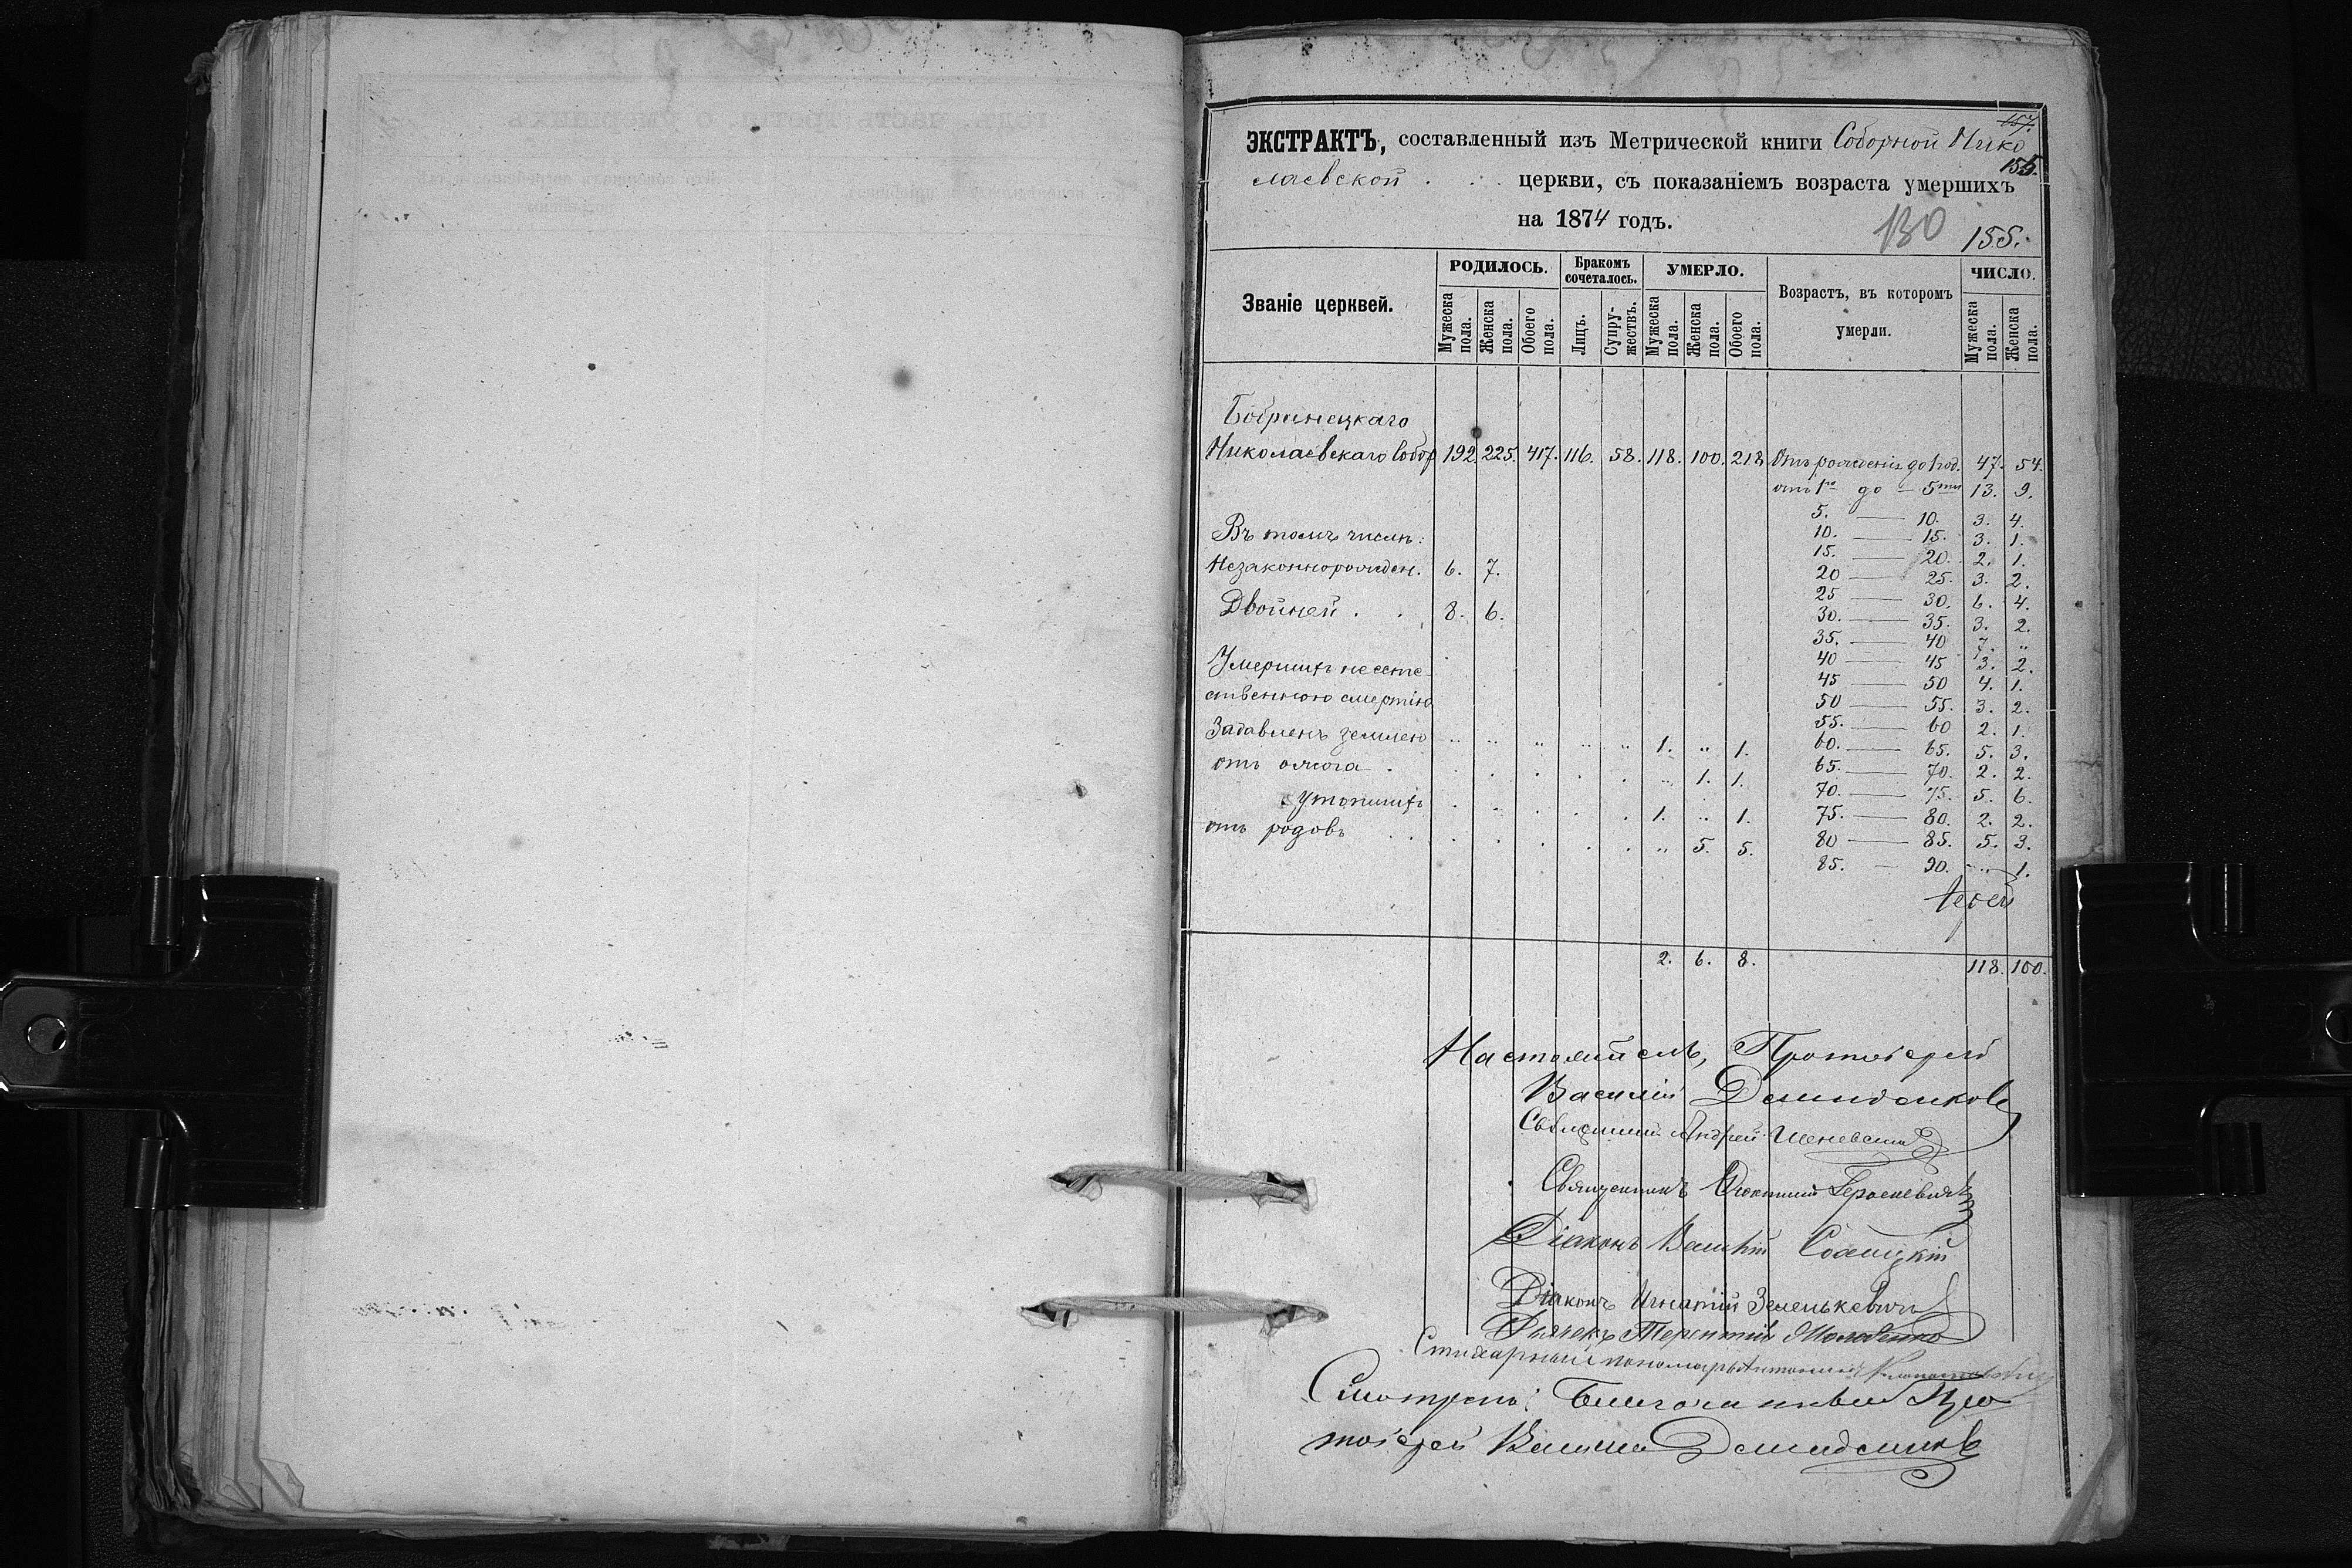 157.
ЭКСТРАКТЪ, составленный изъ Метрической книги Соборной Нико
155.
лаевской . . . церкви, съ показаніемъ возраста умершихъ
на 1874 годъ.
130 155.
Званіе церквей. РОДИЛОСЬ. Бракомъ сочеталось. УМЕРЛО. Возрастъ, въ которомъ умерли. ЧИСЛО.
Мужеска пола. Женска пола. Обоего пола. Лицъ. Супружествъ. Мужеска пола. Женска пола. Обоего пола. Мужеска пола. Женска пола.
Бобринецкаго
Николаевскаго Собор 192. 225. 417. 116. 58. 118. 100. 218. Отъ рожденія до 1 год. 47. 54.
отъ 1го до – 5ти 13. 9.
5. — 10. 3. 4.
Въ томъ числѣ:
10. — 15. 3. 1.
15. — 20. 2. 1.
Незаконнорожден. 6. 7.
20 — 25. 3. 2.
25 — 30. 6. 4.
Двойней . . 8. 6.
30. — 35. 3. 2.
35. — 40 7. "
Умершихъ неесте-
40 — 45 3. 2.
45 — 50 4. 1.
ственною смертію
50 — 55. 3. 2.
55. — 60 2. 1.
Задавленъ землею " " " " " 1. " 1.
60. — 65. 5. 3.
отъ ожога . . . . . . " 1. 1.
65. — 70. 2. 2.
70. — 75. 5. 6.
Утопшихъ . . . . . 1. " 1.
75. — 80. 2. 2.
отъ родовъ . . . . . . . " 5. 5.
80 — 85. 5. 3.
85. — 90. " 1.
2. 6. 8. 118. 100.
Настоятель, Протоіерей
Василій Демиденковъ
Священникъ Андрей
Священникъ
Діаконъ Василій
Діаконъ Игнатій Зеленькевичъ
Дьячекъ Терентій
Стихарный пономарь Антоній
Смотрелъ: Благочинный Про
тоіерей Василій Демиденковъ